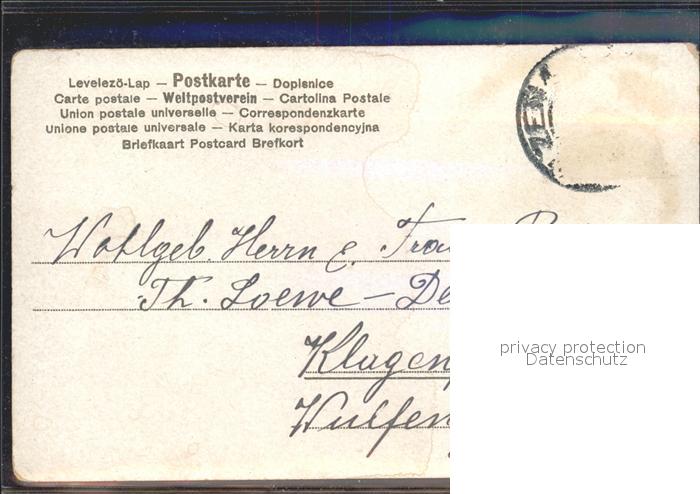 Levelező-Lap — Postkarte — Dopisnice
Carte postale — Weltpostverein — Cartolina Postale
Union postale universelle — Correspondenzkarte
Unione postale universale — Karta korespondencyjna
Briefkaart Postcard Brefkort
Wohlgeb. Herrn &
Th. Loewe — De
Klagen
Wulfen
privacy protection
Datenschutz